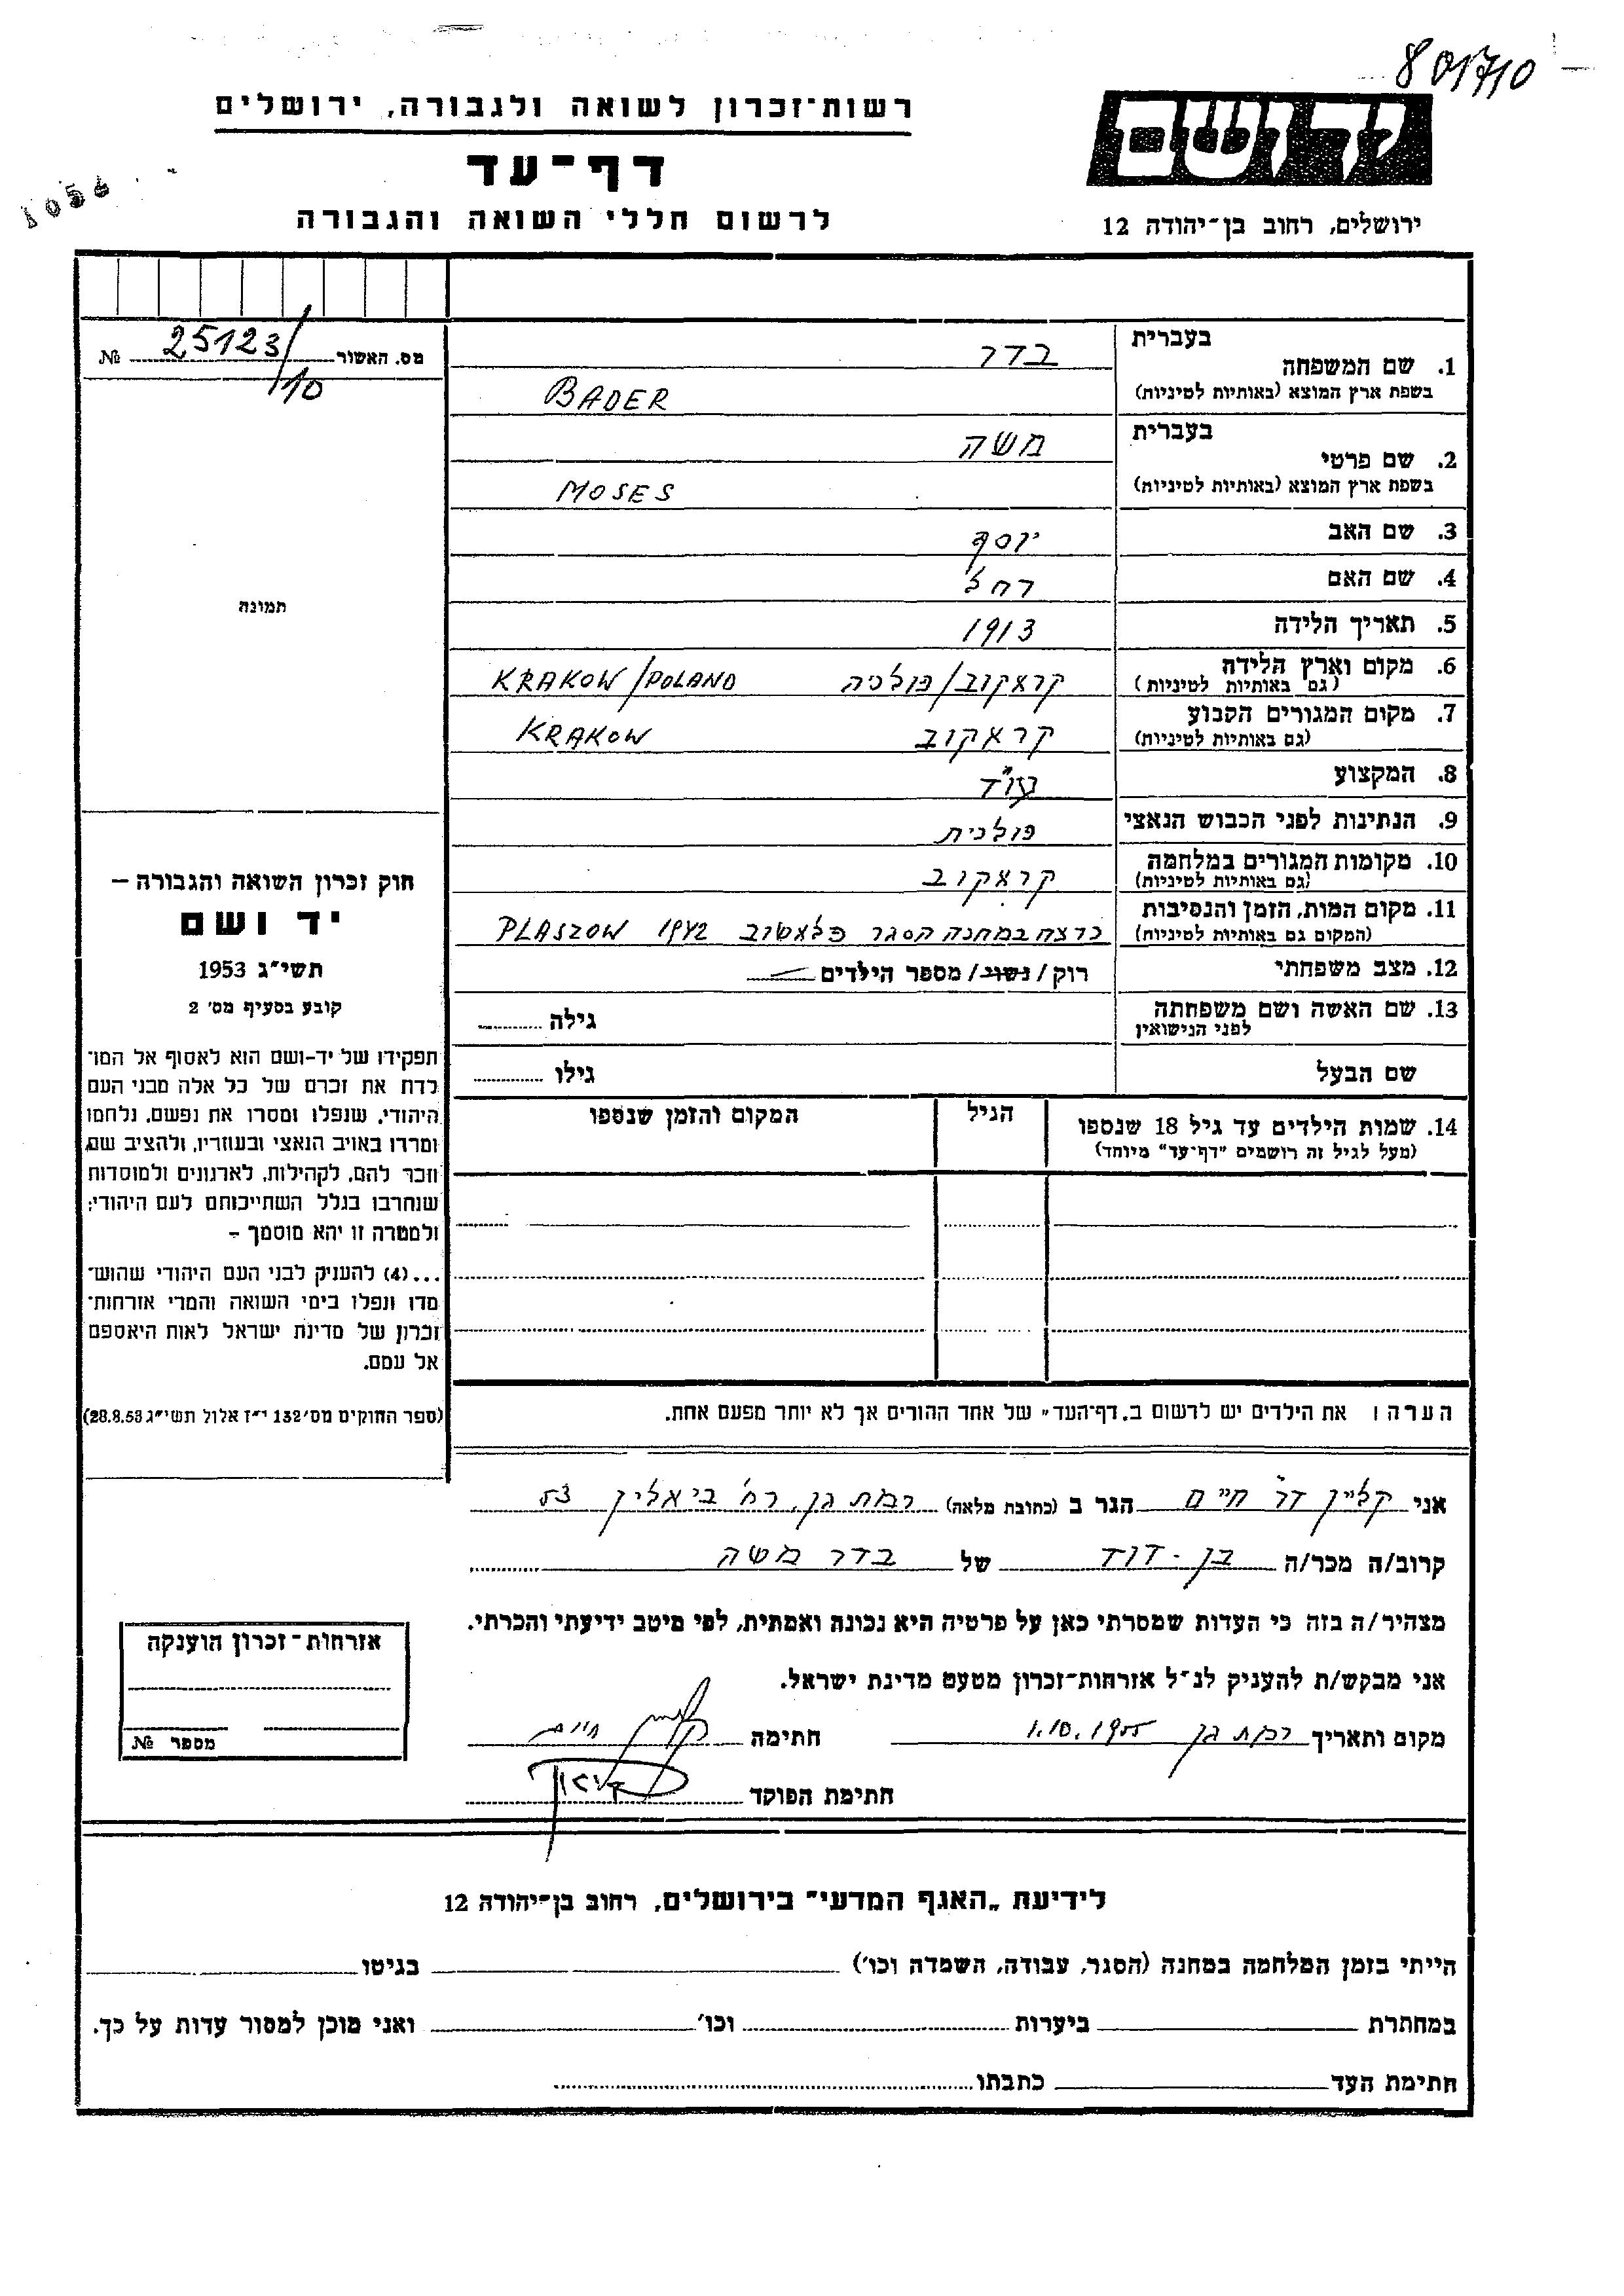 801710
רשות־זכרון לשואה ולגבורה, ירושלים
ידושם
דף־עד
1056
לרשום חללי השואה והגבורה
ירושלים, רחוב בן־יהודה 12
מס. האשור 25123/10 №
תמונה
בעברית
1. שם המשפחה בדר
בשפת ארץ המוצא (באותיות לטיניות) BADER
בעברית
2. שם פרטי משה
בשפת ארץ המוצא (באותיות לטיניות) MOSES
3. שם האב יוסף
4. שם האם רחל
5. תאריך הלידה 1913
6. מקום וארץ הלידה קראקוב/פולניה KRAKOW/POLAND
(גם באותיות לטיניות)
7. מקום המגורים הקבוע קראקוב KRAKOW
(גם באותיות לטיניות)
8. המקצוע עו"ד
9. הנתינות לפני הכבוש הנאצי פולנית
10. מקומות המגורים במלחמה קראקוב
(גם באותיות לטיניות)
11. מקום המות, הזמן והנסיבות נרצח במחנה הסגר פלאשוב 1942 PLASZOW
(המקום גם באותיות לטיניות)
12. מצב משפחתי רוק/נשוב/מספר הילדים
13. שם האשה ושם משפחתה גילה
לפני הנישואין
שם הבעל גילו
14. שמות הילדים עד גיל 18 שנספו הגיל המקום והזמן שנספו
(מעל לגיל זה רושמים "דף־עד" מיוחד)
חוק זכרון השואה והגבורה –
יד ושם
תשי"ג 1953
קובע בסעיף מס' 2
תפקידו של יד-ושם הוא לאסוף אל המו־
לדת את זכרם של כל אלה מבני העם
היהודי, שנפלו ומסרו את נפשם, נלחמו
ומרדו באויב הנאצי ובעוזריו, ולהציב שם
וזכר להם, לקהילות, לארגונים ולמוסדות
שנחרבו בגלל השתייכותם לעם היהודי;
ולמטרה זו יהא מוסמך –
...(4) להעניק לבני העם היהודי שהוש־
מדו ונפלו בימי השואה והמרי אזרחות־
זכרון של מדינת ישראל לאות היאספם
אל עמם.
(ספר החוקים מס' 132 י"ז אלול תשי"ג 28.8.53)
הערה: את הילדים יש לרשום ב„דף־העד" של אחד ההורים אך לא יותר מפעם אחת.
אני קליין דר חיים הגר ב (כתובת מלאה) רמת גן, רח' ביאליק 53
קרוב/ה מכר/ה בן-דוד של בדר משה
מצהיר/ה בזה כי העדות שמסרתי כאן על פרטיה היא נכונה ואמתית, לפי מיטב ידיעתי והכרתי.
אני מבקש/ת להעניק לנ"ל אזרחות־זכרון מטעם מדינת ישראל.
מקום ותאריך רמת גן 1.10.1955 חתימה קליין חיים
חתימת הפוקד
אזרחות־זכרון הוענקה
מספר №
לידיעת „האגף המדעי" בירושלים, רחוב בן־יהודה 12
הייתי בזמן המלחמה במחנה (הסגר, עבודה, השמדה וכו') בגיטו
במחתרת ביערות וכו' ואני מוכן למסור עדות על כך.
חתימת העד כתבתו